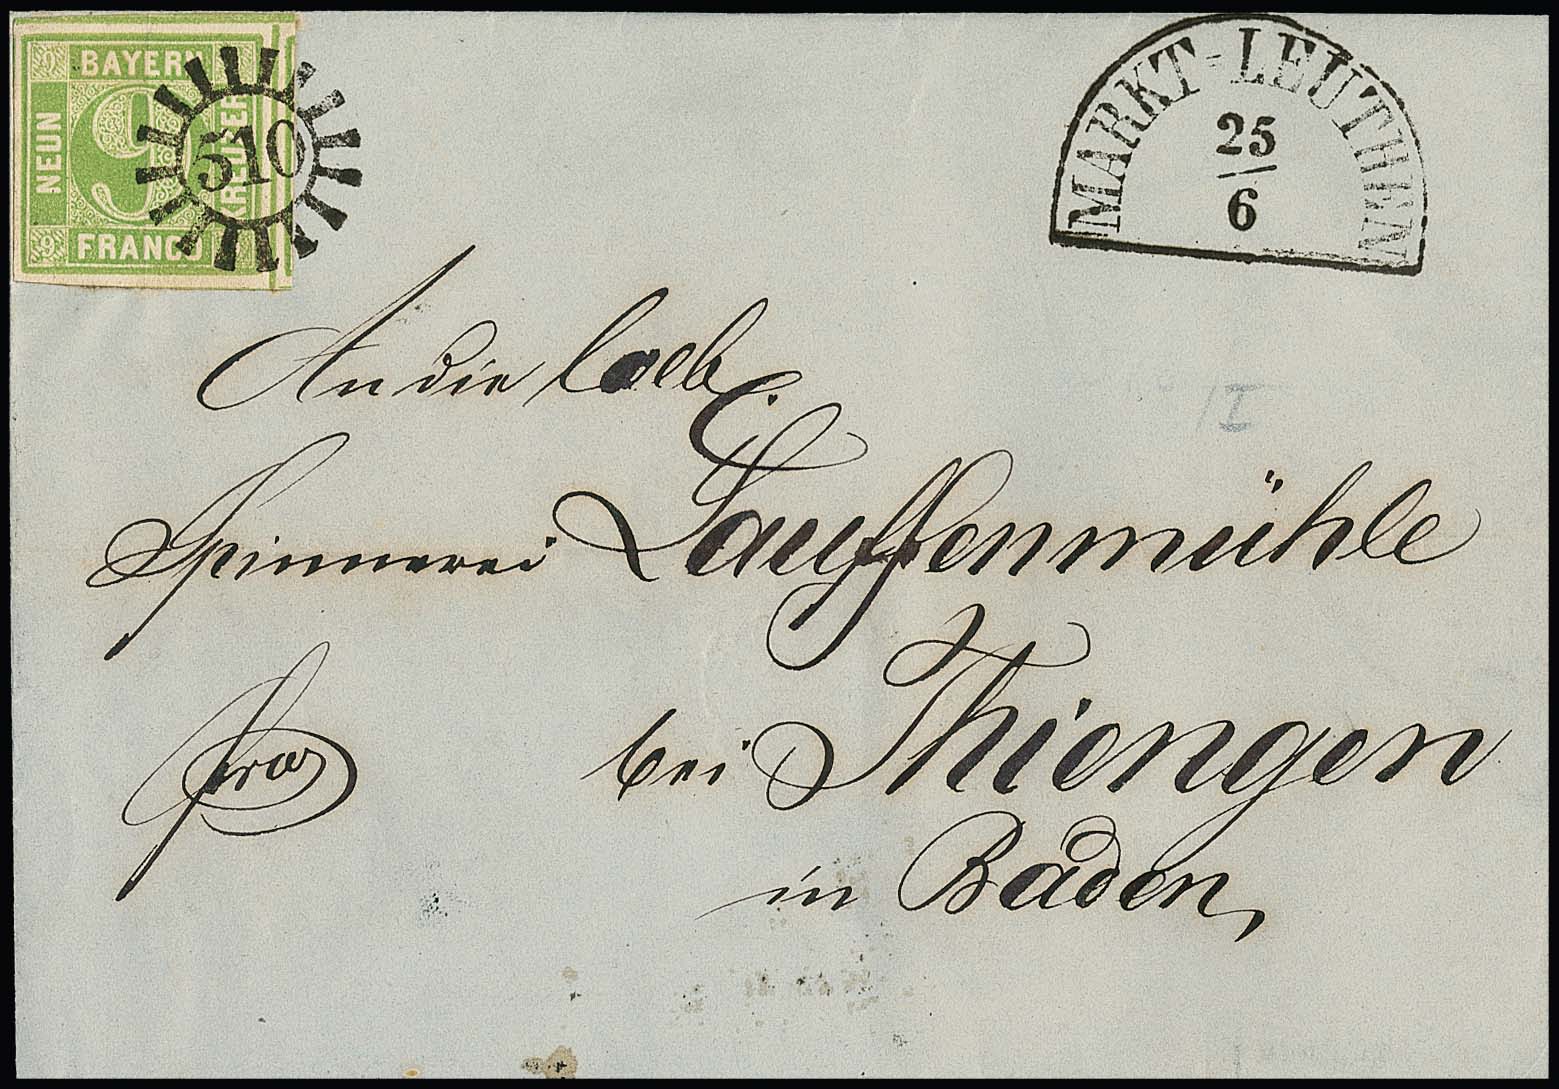 9
BAYERN
NEUN
9
KREUZER
9 FRANCO
510
MARKT-LEUTHEN
25
6
An die löbl.
Spinnerei Lauffenmühle
fro
bei Thiengen
in Baden,
I